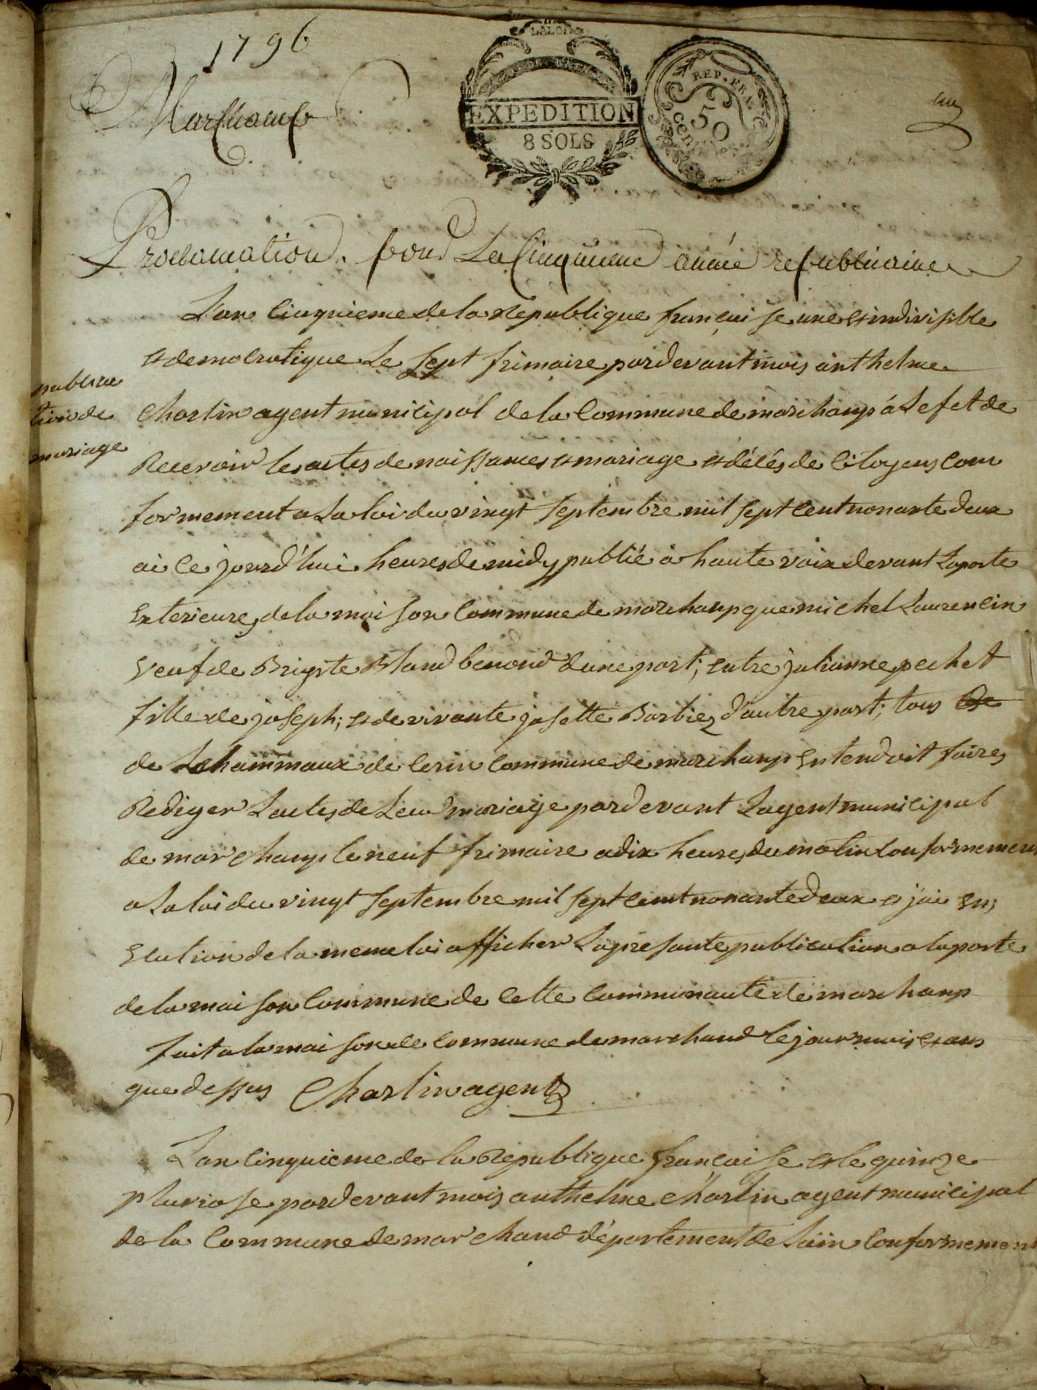 1796
Marchamp
LA LOI
EXPEDITION
8 SOLS
REP. FRA.
50
CENTIMES
Proclamation pour La Cinquieme année republicaine
Lan Cinquieme de la Republique françai se une et indivisible
et democratique Le sept frimaire pardevant mois anthelme
publica
tion de
mariage
Charlin agent municipal de la Commune de marchamp a Lefet de
Recevoir les actes de naissances et mariage et décés de Citoyens Con
formement a La loi du vingt septembre mil sept Cent nonante deux
ai Ce jourd'hui heures de midy publié à haute voix devant La porte
Exterieure de la mai son Commune de marchamp que michel Laurencin
veuf de Brigite Bland benond d'une part; entre julianne pechet
fille de joseph; et de vivante josette Barbier d'autre part; tous de
de Lehammaux de Cerin Commune de marchamp Entendoit faire
Rediger Lactes de Leur mariage pardevant Lagent municipal
de marchamp le neuf frimaire a dix heures du matin Conformement
a La loi du vingt septembre mil sept Cent nonante deux et jai En
Ecution de la meme loi afficher La pre sante publication a la porte
de la mai son Commune de Cette Communauté de marchamp
fait a la mai son de Commune de marchand le jour mois et an
que dessus Charlin agent
Lan Cinquieme de la Republique françai se et le quinze
pluvio se pardevant mois anthelme Charlin agent municipal
de la Commune de marchand département de Lain Conformement